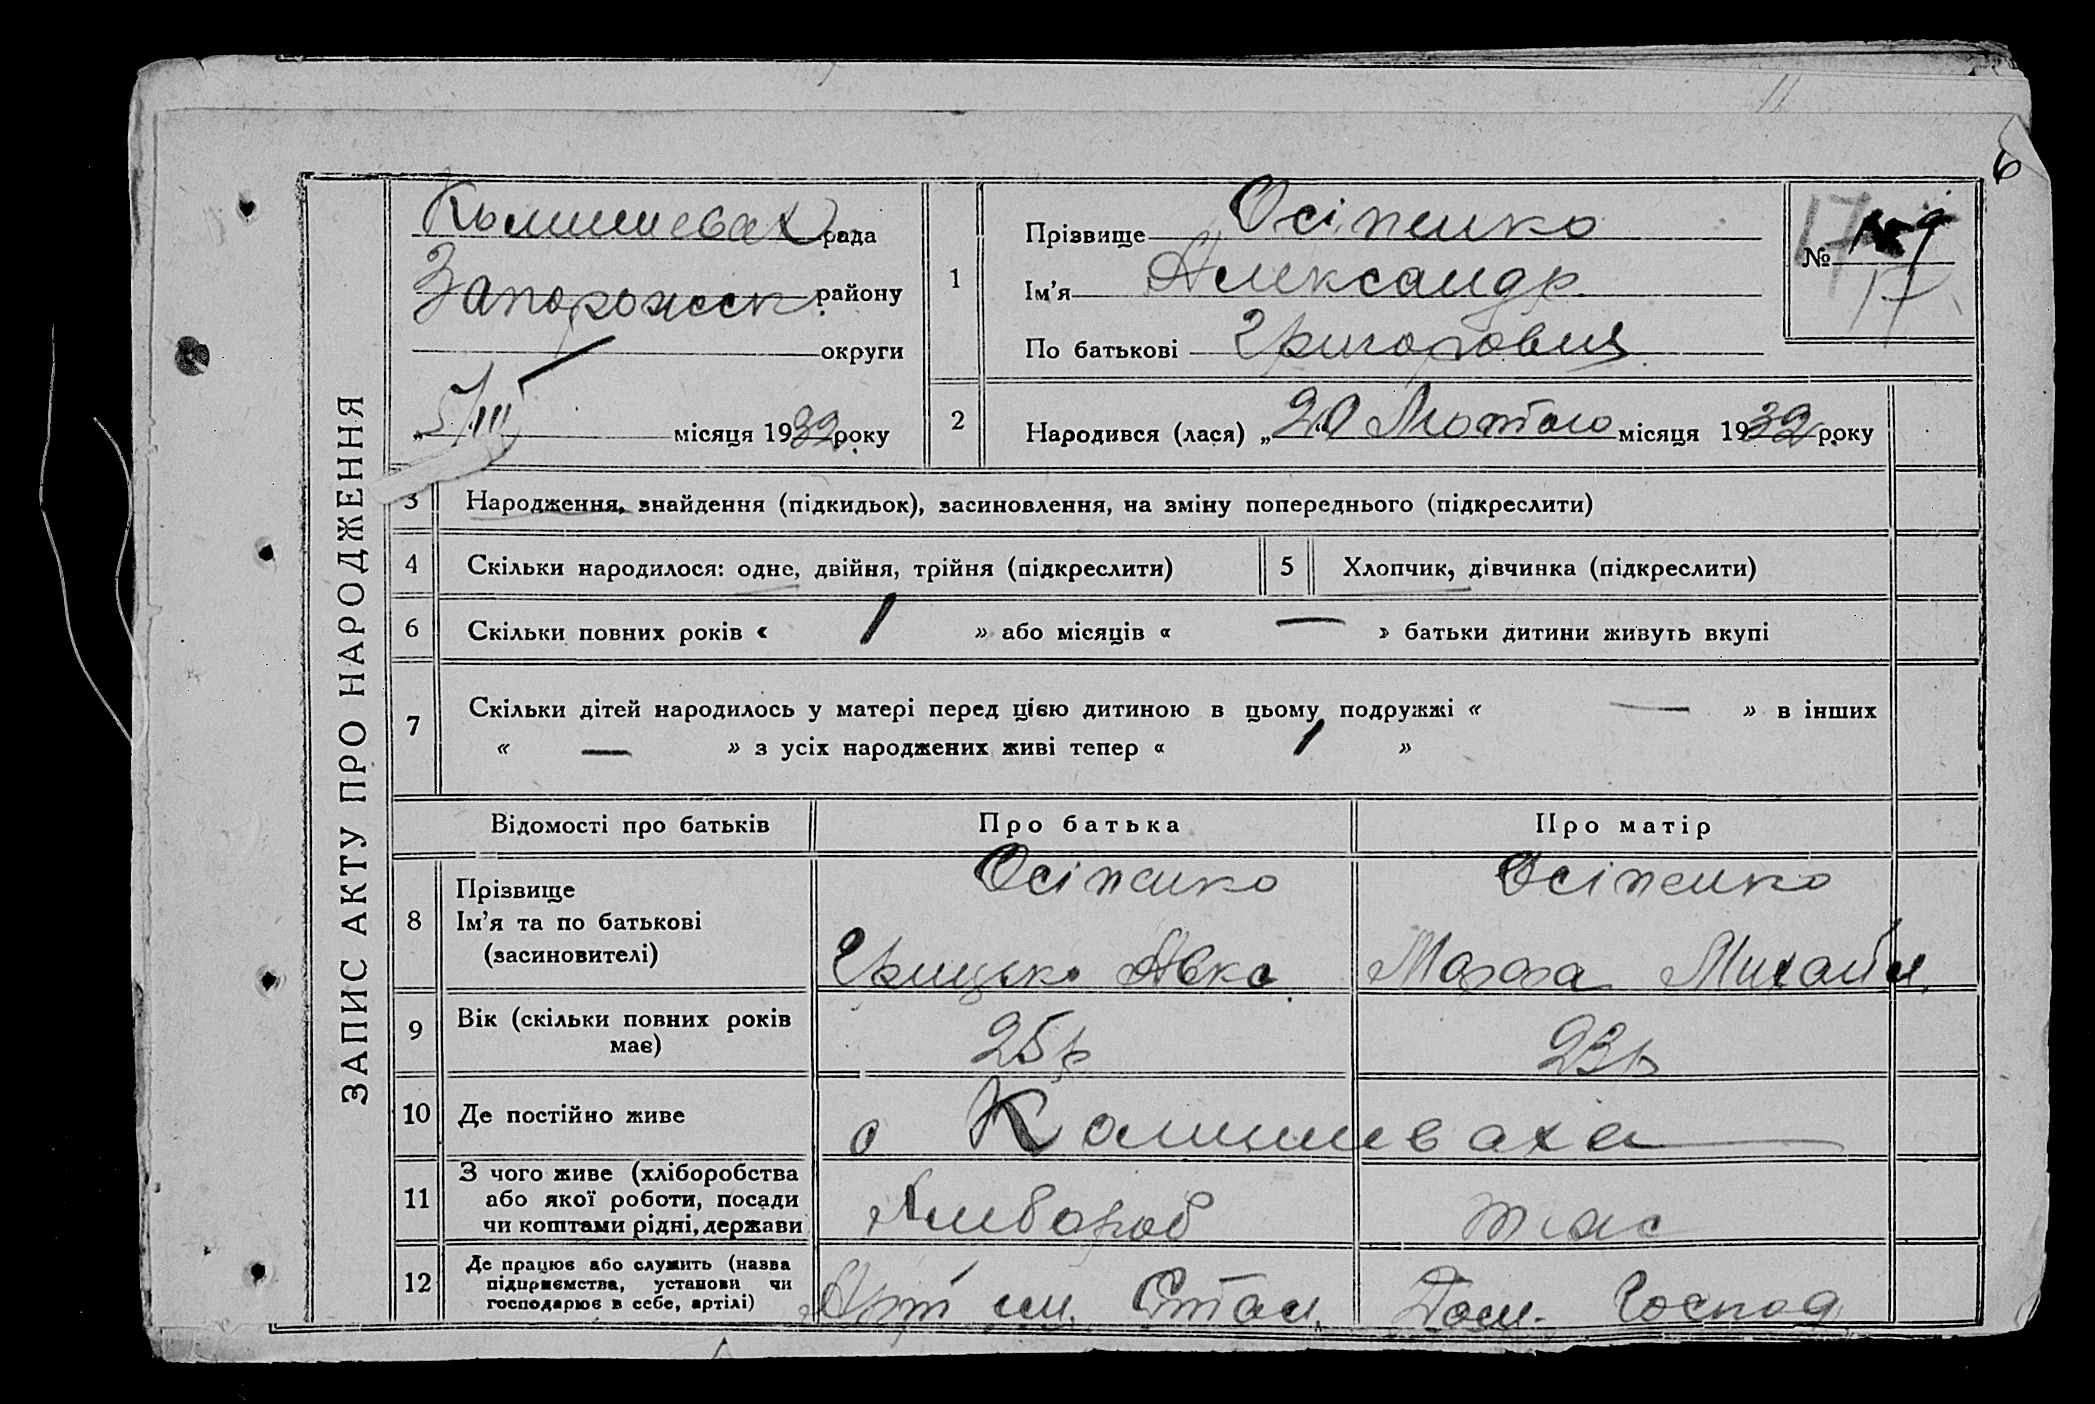 6
ЗАПИС АКТУ ПРО НАРОДЖЕННЯ
Комишевах рада
Запорожск району
округи
„5/III місяця 1932 року
1
Прізвище Осіпенко
Ім'я Александр
По батькові Григорович
17
№ 9
17
2
Народився (лася) „20“ Лютого місяця 1932 року
3 Народження, знайдення (підкидьок), засиновлення, на зміну попереднього (підкреслити)
4 Скільки народилося: одне, двійня, трійня (підкреслити)
5 Хлопчик, дівчинка (підкреслити)
6 Скільки повних років « 1 » або місяців « — » батьки дитини живуть вкупі
7 Скільки дітей народилось у матері перед цією дитиною в цьому подружжі « — » в інших
« — » з усіх народжених живі тепер « 1 »
Відомості про батьків Про батька Про матір
8 Прізвище
Ім'я та по батькові
(засиновителі)
Осіпенко
Грицько Авкс.
Осіпенко
Марфа Михайл.
9 Вік (скільки повних років
має)
25 р
23 р
10 Де постійно живе с Камишеваха
11 З чого живе (хліборобства
або якої роботи, посади
чи коштами рідні, держави
Хлебороб
тяс
12 Де працює або служить (назва
підприємства, установи чи
господарює в себе, артілі)
Арт им. Стал.
Дом. Господ